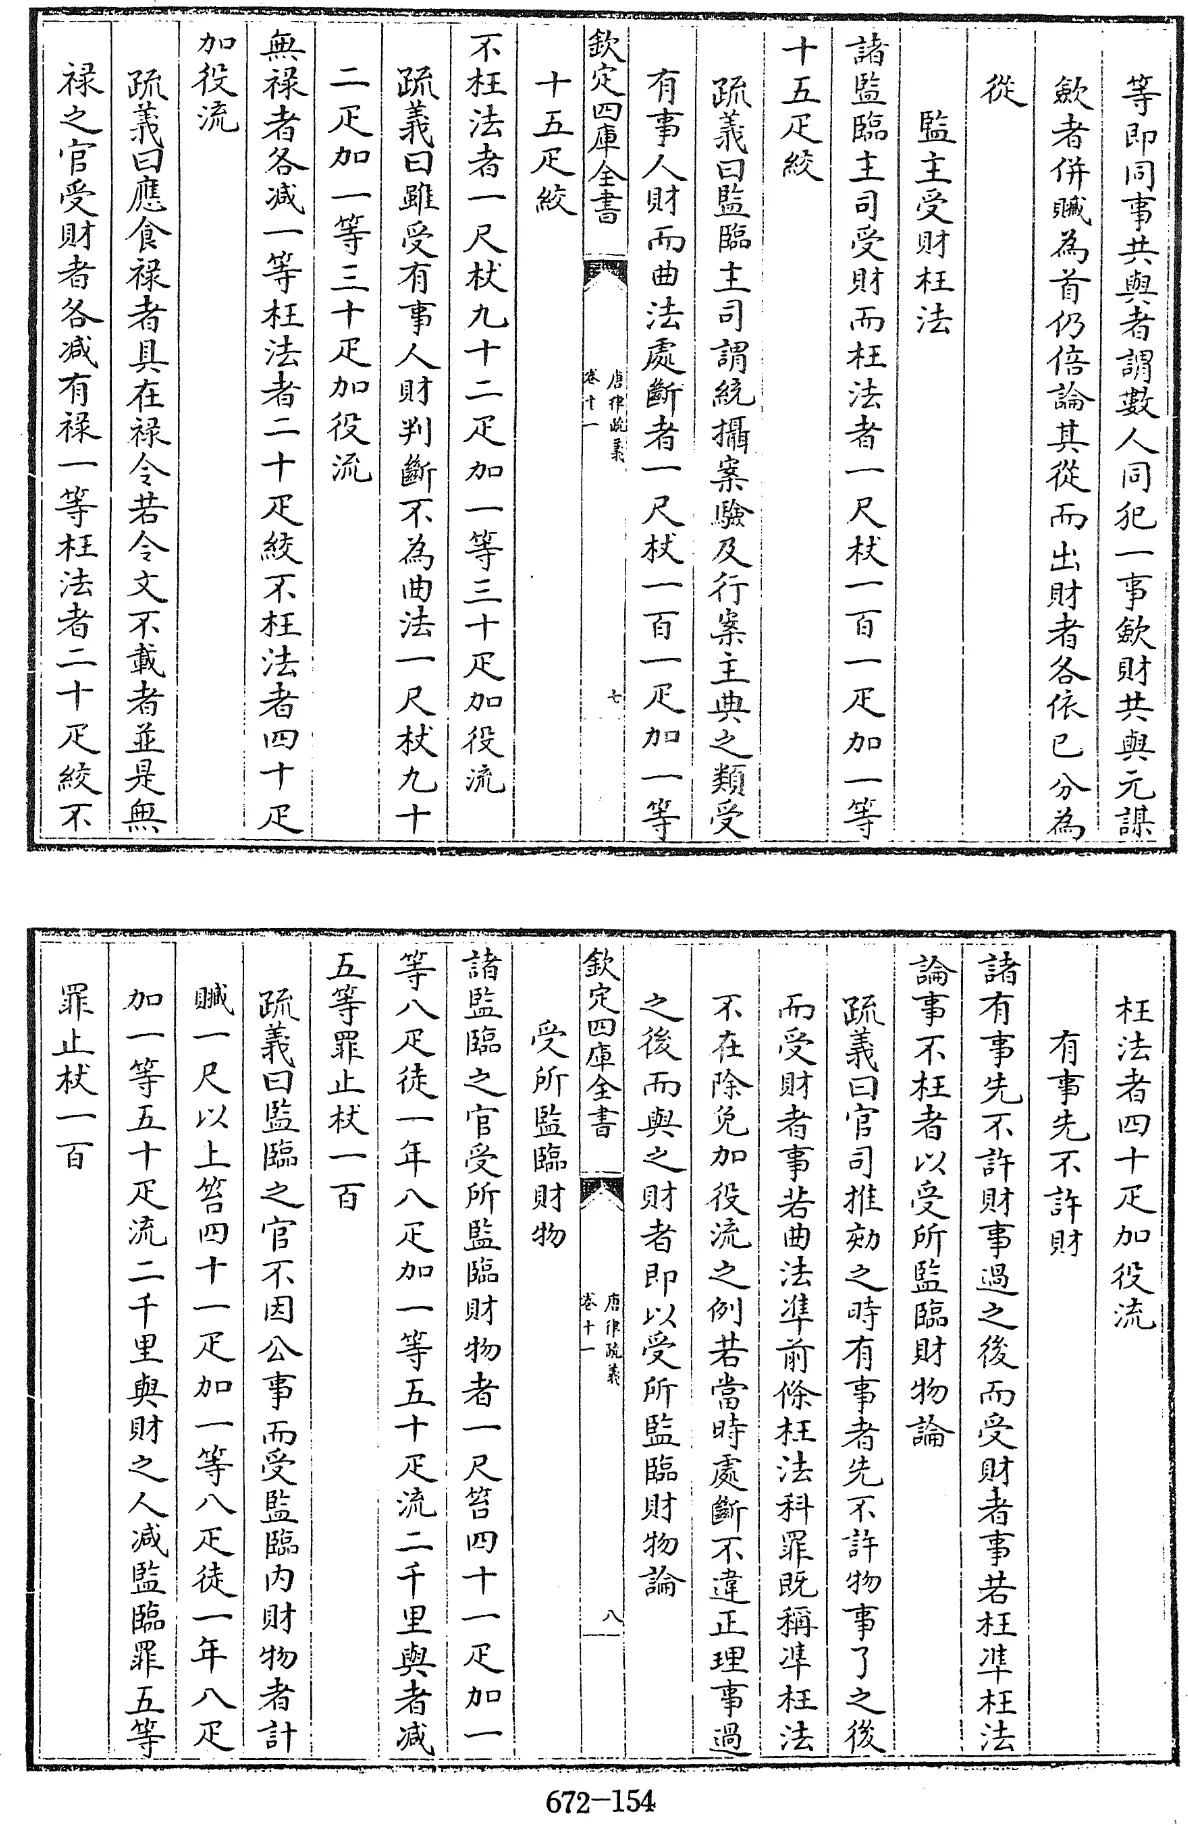 等即同事共與者謂數人同犯一事歛財共與元謀
歛者併贓為首仍倍論其從而出財者各依已分為
從
監主受財枉法
諸監臨主司受財而枉法者一尺杖一百一疋加一等
十五疋絞
疏義曰監臨主司謂統攝案驗及行案主典之類受
有事人財而曲法處斷者一尺杖一百一疋加一等
欽定四庫全書
唐律疏義
卷十一
七
十五疋絞
不枉法者一尺杖九十二疋加一等三十疋加役流
疏義曰雖受有事人財判斷不為曲法一尺杖九十
二疋加一等三十疋加役流
無禄者各減一等枉法者二十疋絞不枉法者四十疋
加役流
疏義曰應食禄者具在禄令若令文不載者並是無
禄之官受財者各減有禄一等枉法者二十疋絞不
枉法者四十疋加役流
有事先不許財
諸有事先不許財事過之後而受財者事若枉凖枉法
論事不枉者以受所監臨財物論
疏義曰官司推劾之時有事者先不許物事了之後
而受財者事若曲法凖前條枉法科罪既稱凖枉法
不在除免加役流之例若當時處斷不違正理事過
之後而與之財者即以受所監臨財物論
欽定四庫全書
唐律疏義
卷十一
八
受所監臨財物
諸監臨之官受所監臨財物者一尺笞四十一疋加一
等八疋徒一年八疋加一等五十疋流二千里與者減
五等罪止杖一百
疏義曰監臨之官不因公事而受監臨内財物者計
贓一尺以上笞四十一疋加一等八疋徒一年八疋
加一等五十疋流二千里與財之人減監臨罪五等
罪止杖一百
672-154